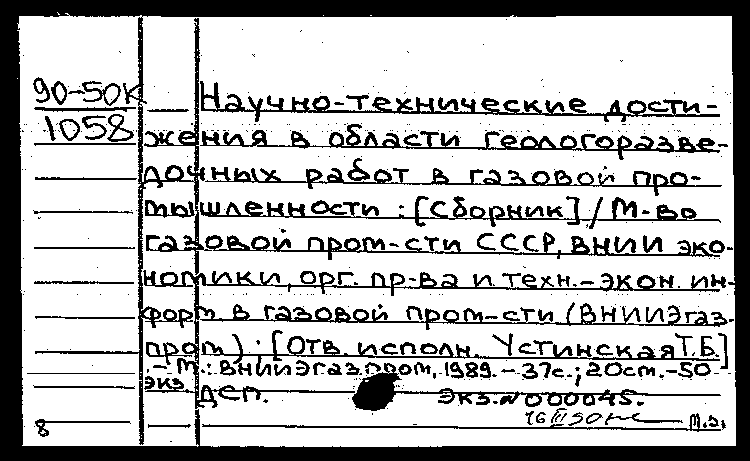 90-50к Научно-технические дости-
1058 жения в области геологоразве-
дочных работ в газовой про-
мышленности : [Сборник] / М-во
газовой пром-сти СССР, ВНИИ эко-
номики, орг. пр-ва и техн.-экон. ин-
форм в газовой пром-сти (ВНИИЭгаз-
пром) ; [Отв. исполн. Устинская Т.Б.]
. - М. : ВНИИЭгазпром, 1989. - 37с. ; 20см. - 50
экз. ДСП. Экз. N 000045.
8 16 III 90 м.э.